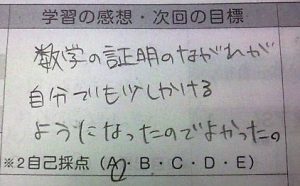 学習の感想・次回の目標
数学の証明のながれが
自分でも少しかける
ようになったのでよかった。
※2自己採点(A・B・C・D・E)